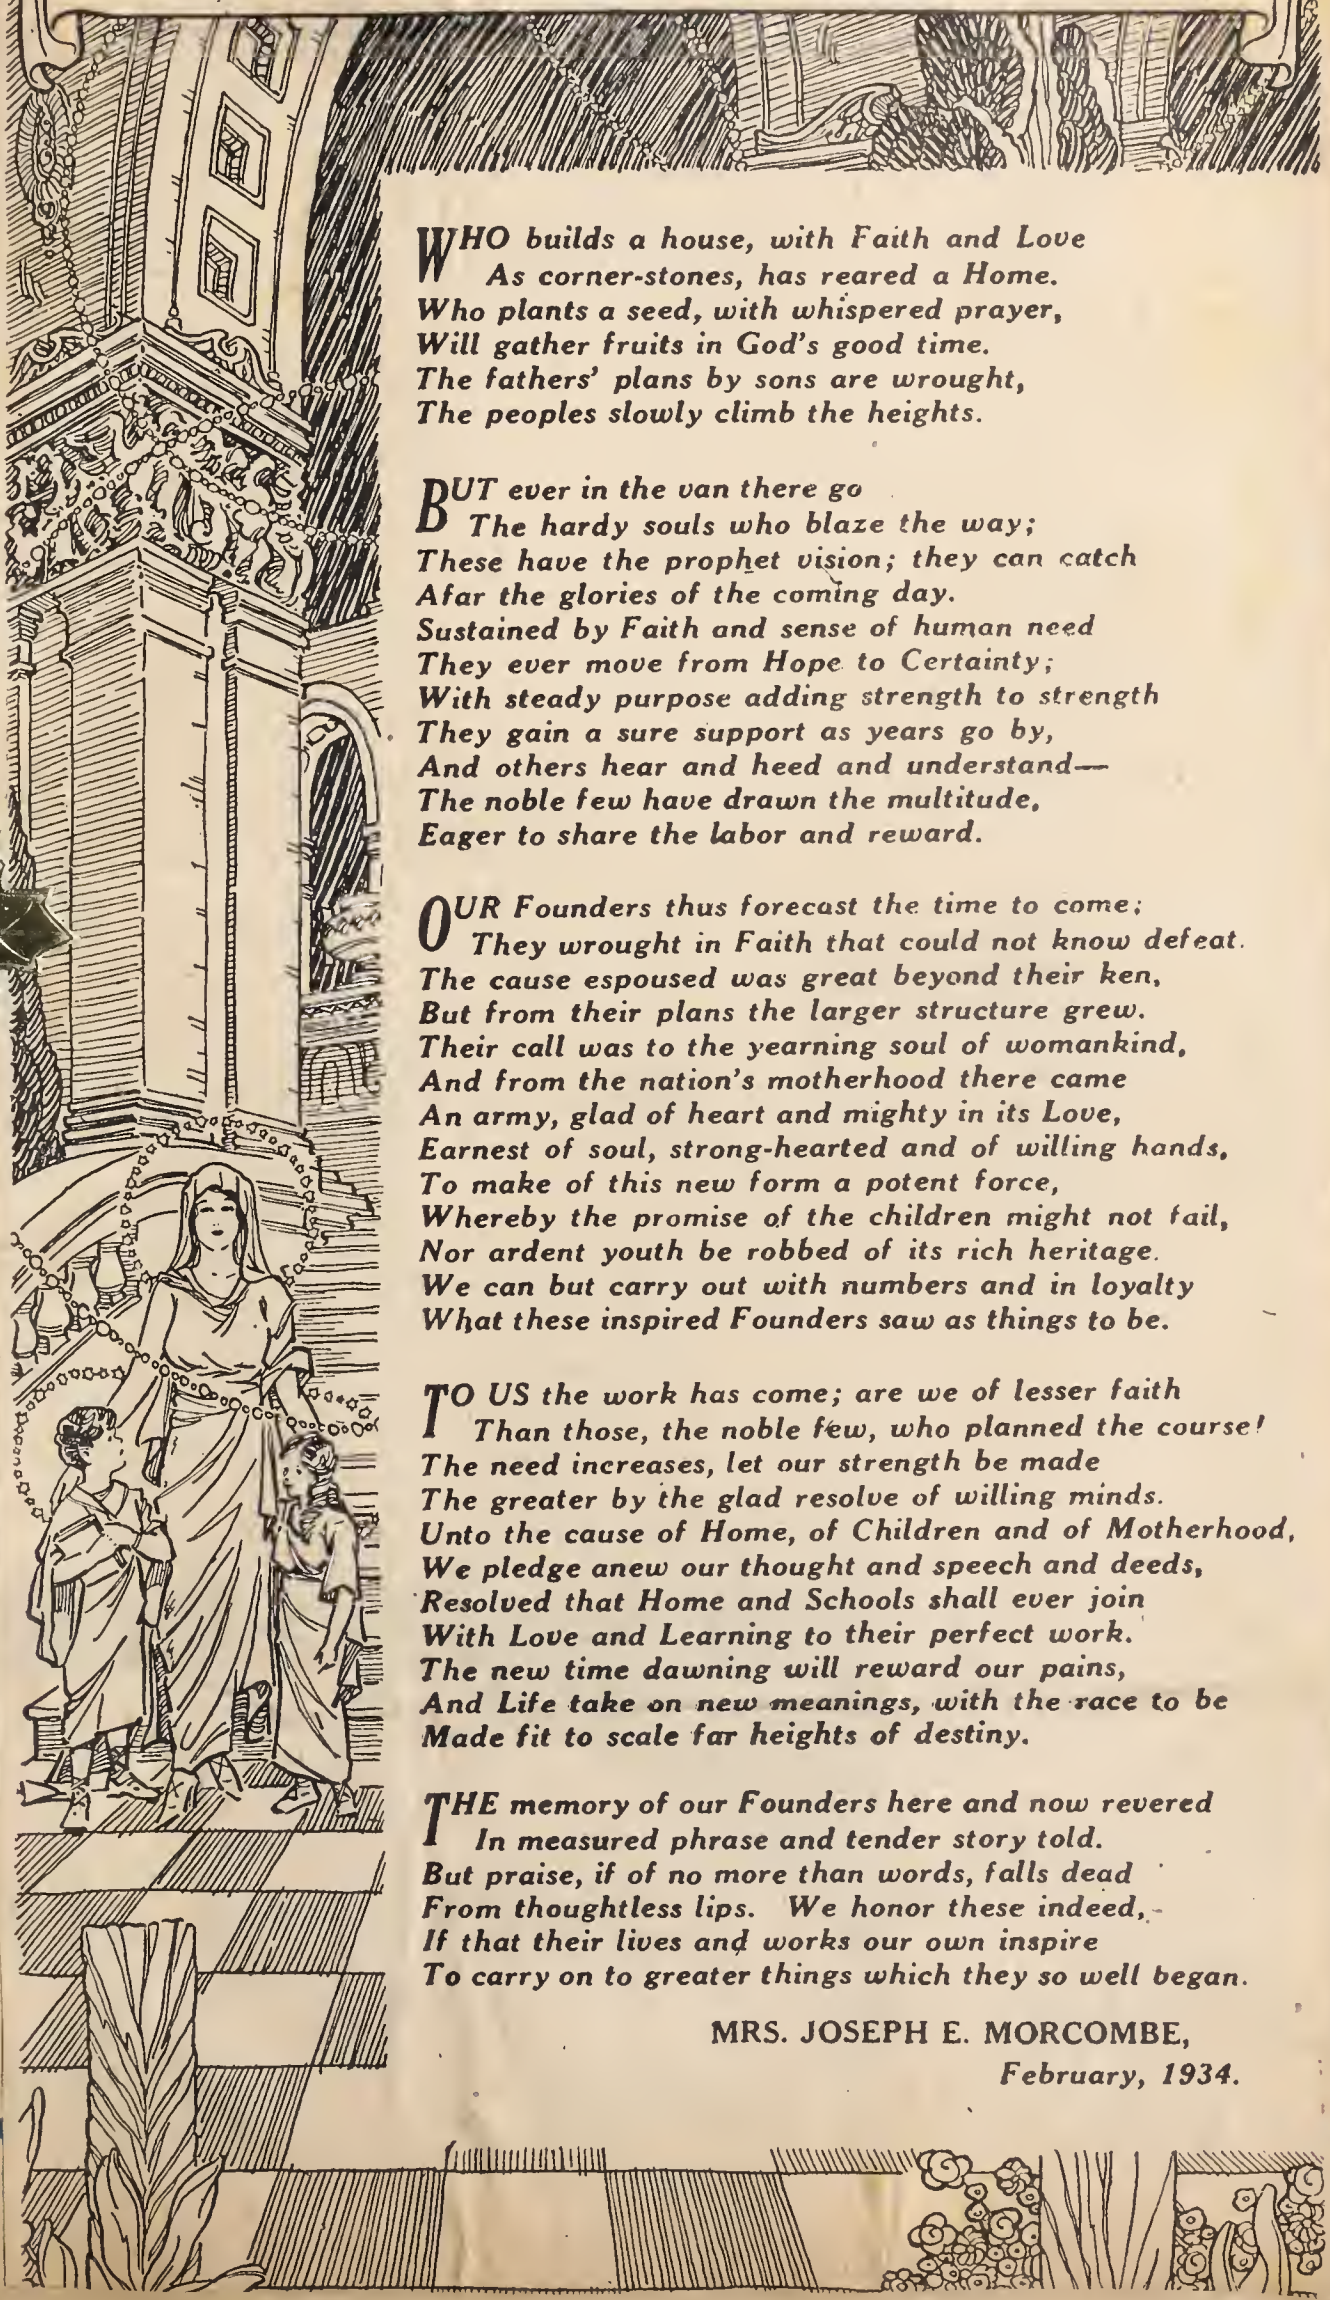 WHO builds a house, with Faith and Love
As corner-stones, has reared a Home.
Who plants a seed, with whispered prayer,
Will gather fruits in God's good time.
The fathers' plans by sons are wrought,
The peoples slowly climb the heights.
BUT ever in the van there go
The hardy souls who blaze the way;
These have the prophet vision; they can catch
Afar the glories of the coming day.
Sustained by Faith and sense of human need
They ever move from Hope to Certainty;
With steady purpose adding strength to strength
They gain a sure support as years go by,
And others hear and heed and understand—
The noble few have drawn the multitude,
Eager to share the labor and reward.
OUR Founders thus forecast the time to come;
They wrought in Faith that could not know defeat.
The cause espoused was great beyond their ken,
But from their plans the larger structure grew.
Their call was to the yearning soul of womankind,
And from the nation's motherhood there came
An army, glad of heart and mighty in its Love,
Earnest of soul, strong-hearted and of willing hands,
To make of this new form a potent force,
Whereby the promise of the children might not fail,
Nor ardent youth be robbed of its rich heritage.
We can but carry out with numbers and in loyalty
What these inspired Founders saw as things to be.
TO US the work has come; are we of lesser faith
Than those, the noble few, who planned the course!
The need increases, let our strength be made
The greater by the glad resolve of willing minds.
Unto the cause of Home, of Children and of Motherhood,
We pledge anew our thought and speech and deeds,
Resolved that Home and Schools shall ever join
With Love and Learning to their perfect work.
The new time dawning will reward our pains,
And Life take on new meanings, with the race to be
Made fit to scale far heights of destiny.
THE memory of our Founders here and now revered
In measured phrase and tender story told.
But praise, if of no more than words, falls dead
From thoughtless lips. We honor these indeed,
If that their lives and works our own inspire
To carry on to greater things which they so well began.
MRS. JOSEPH E. MORCOMBE,
February, 1934.